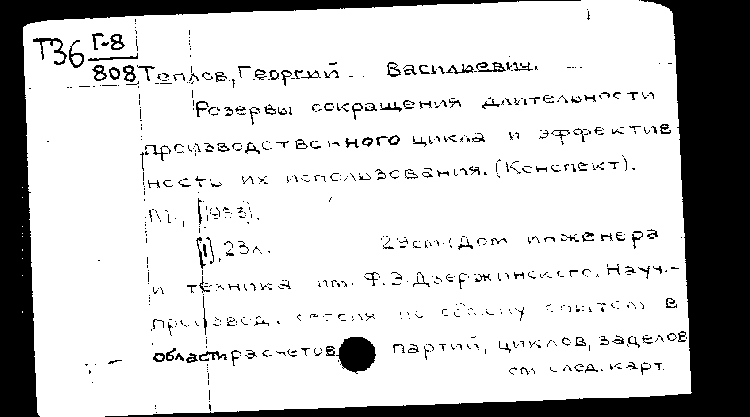 Т36 Г-8
808 Теплов, Георгий Васильевич.
Резервы сокращения длительности
производственного цикла и эффектив
ность их использования. (Конспект).
М., [1953].
[1], 23л. 29см (Дом инженера
и техника им. Ф.Э.Дзержинского. Науч.-
производ. по обмену опытом в
области расчетов партий, циклов, заделов
см след. карт.